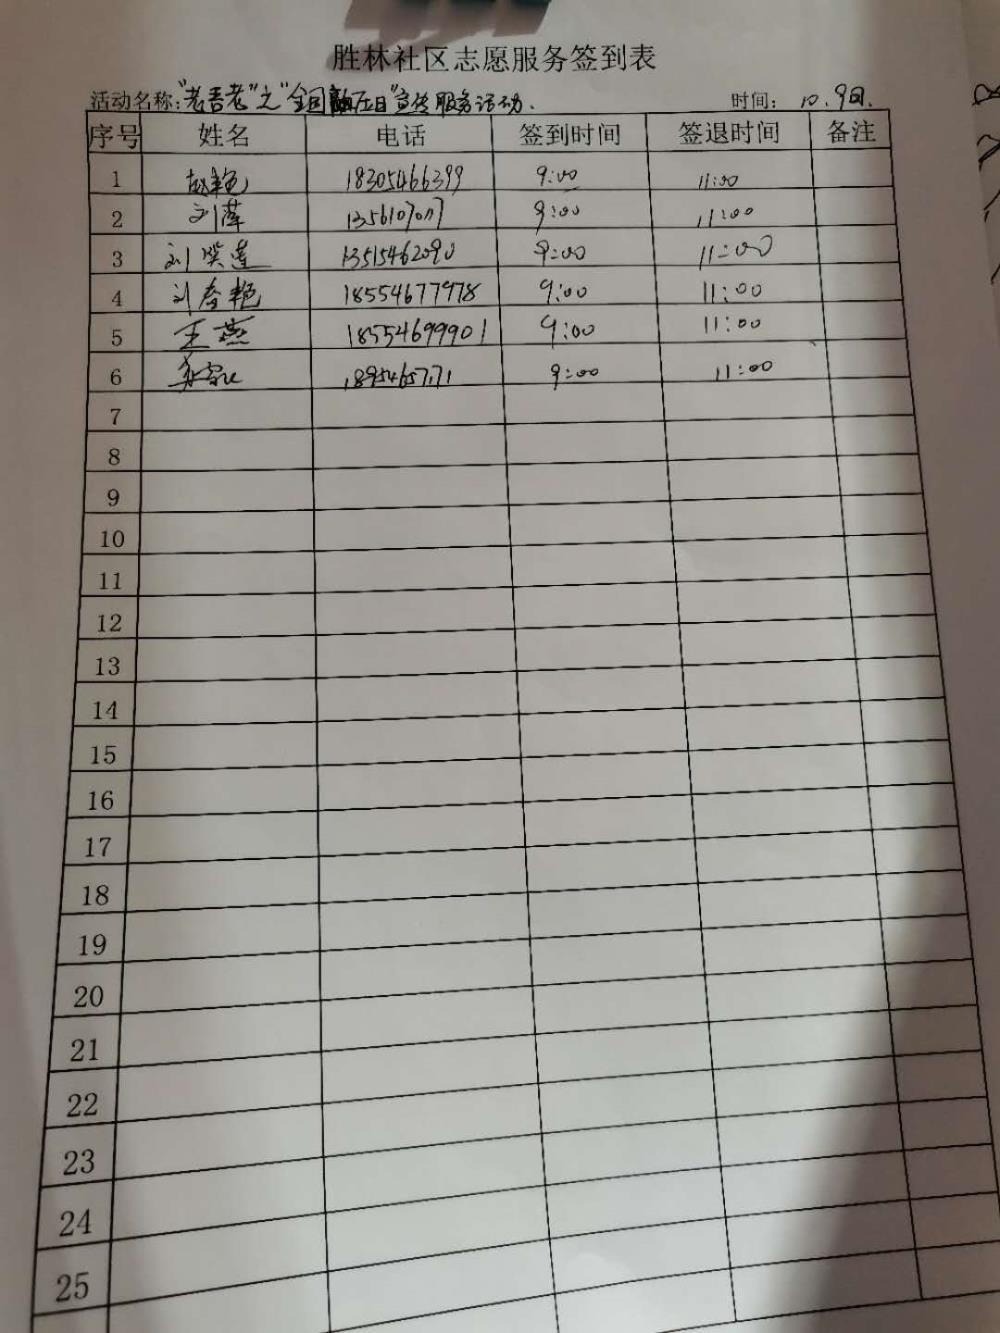 胜林社区志愿服务签到表
活动名称:"老吾老"之"全国高血压日"宣传服务活动. 时间: 10.9日.
序号 姓名 电话 签到时间 签退时间 备注
1 18305466399 9:00 11:00
2 刘萍 9:00 11:00
3 刘 莲 13515462090 9:00 11:00
4 刘春艳 18554677978 9:00 11:00
5 王燕 18554699901 9:00 11:00
6 9:00 11:00
7
8
9
10
11
12
13
14
15
16
17
18
19
20
21
22
23
24
25